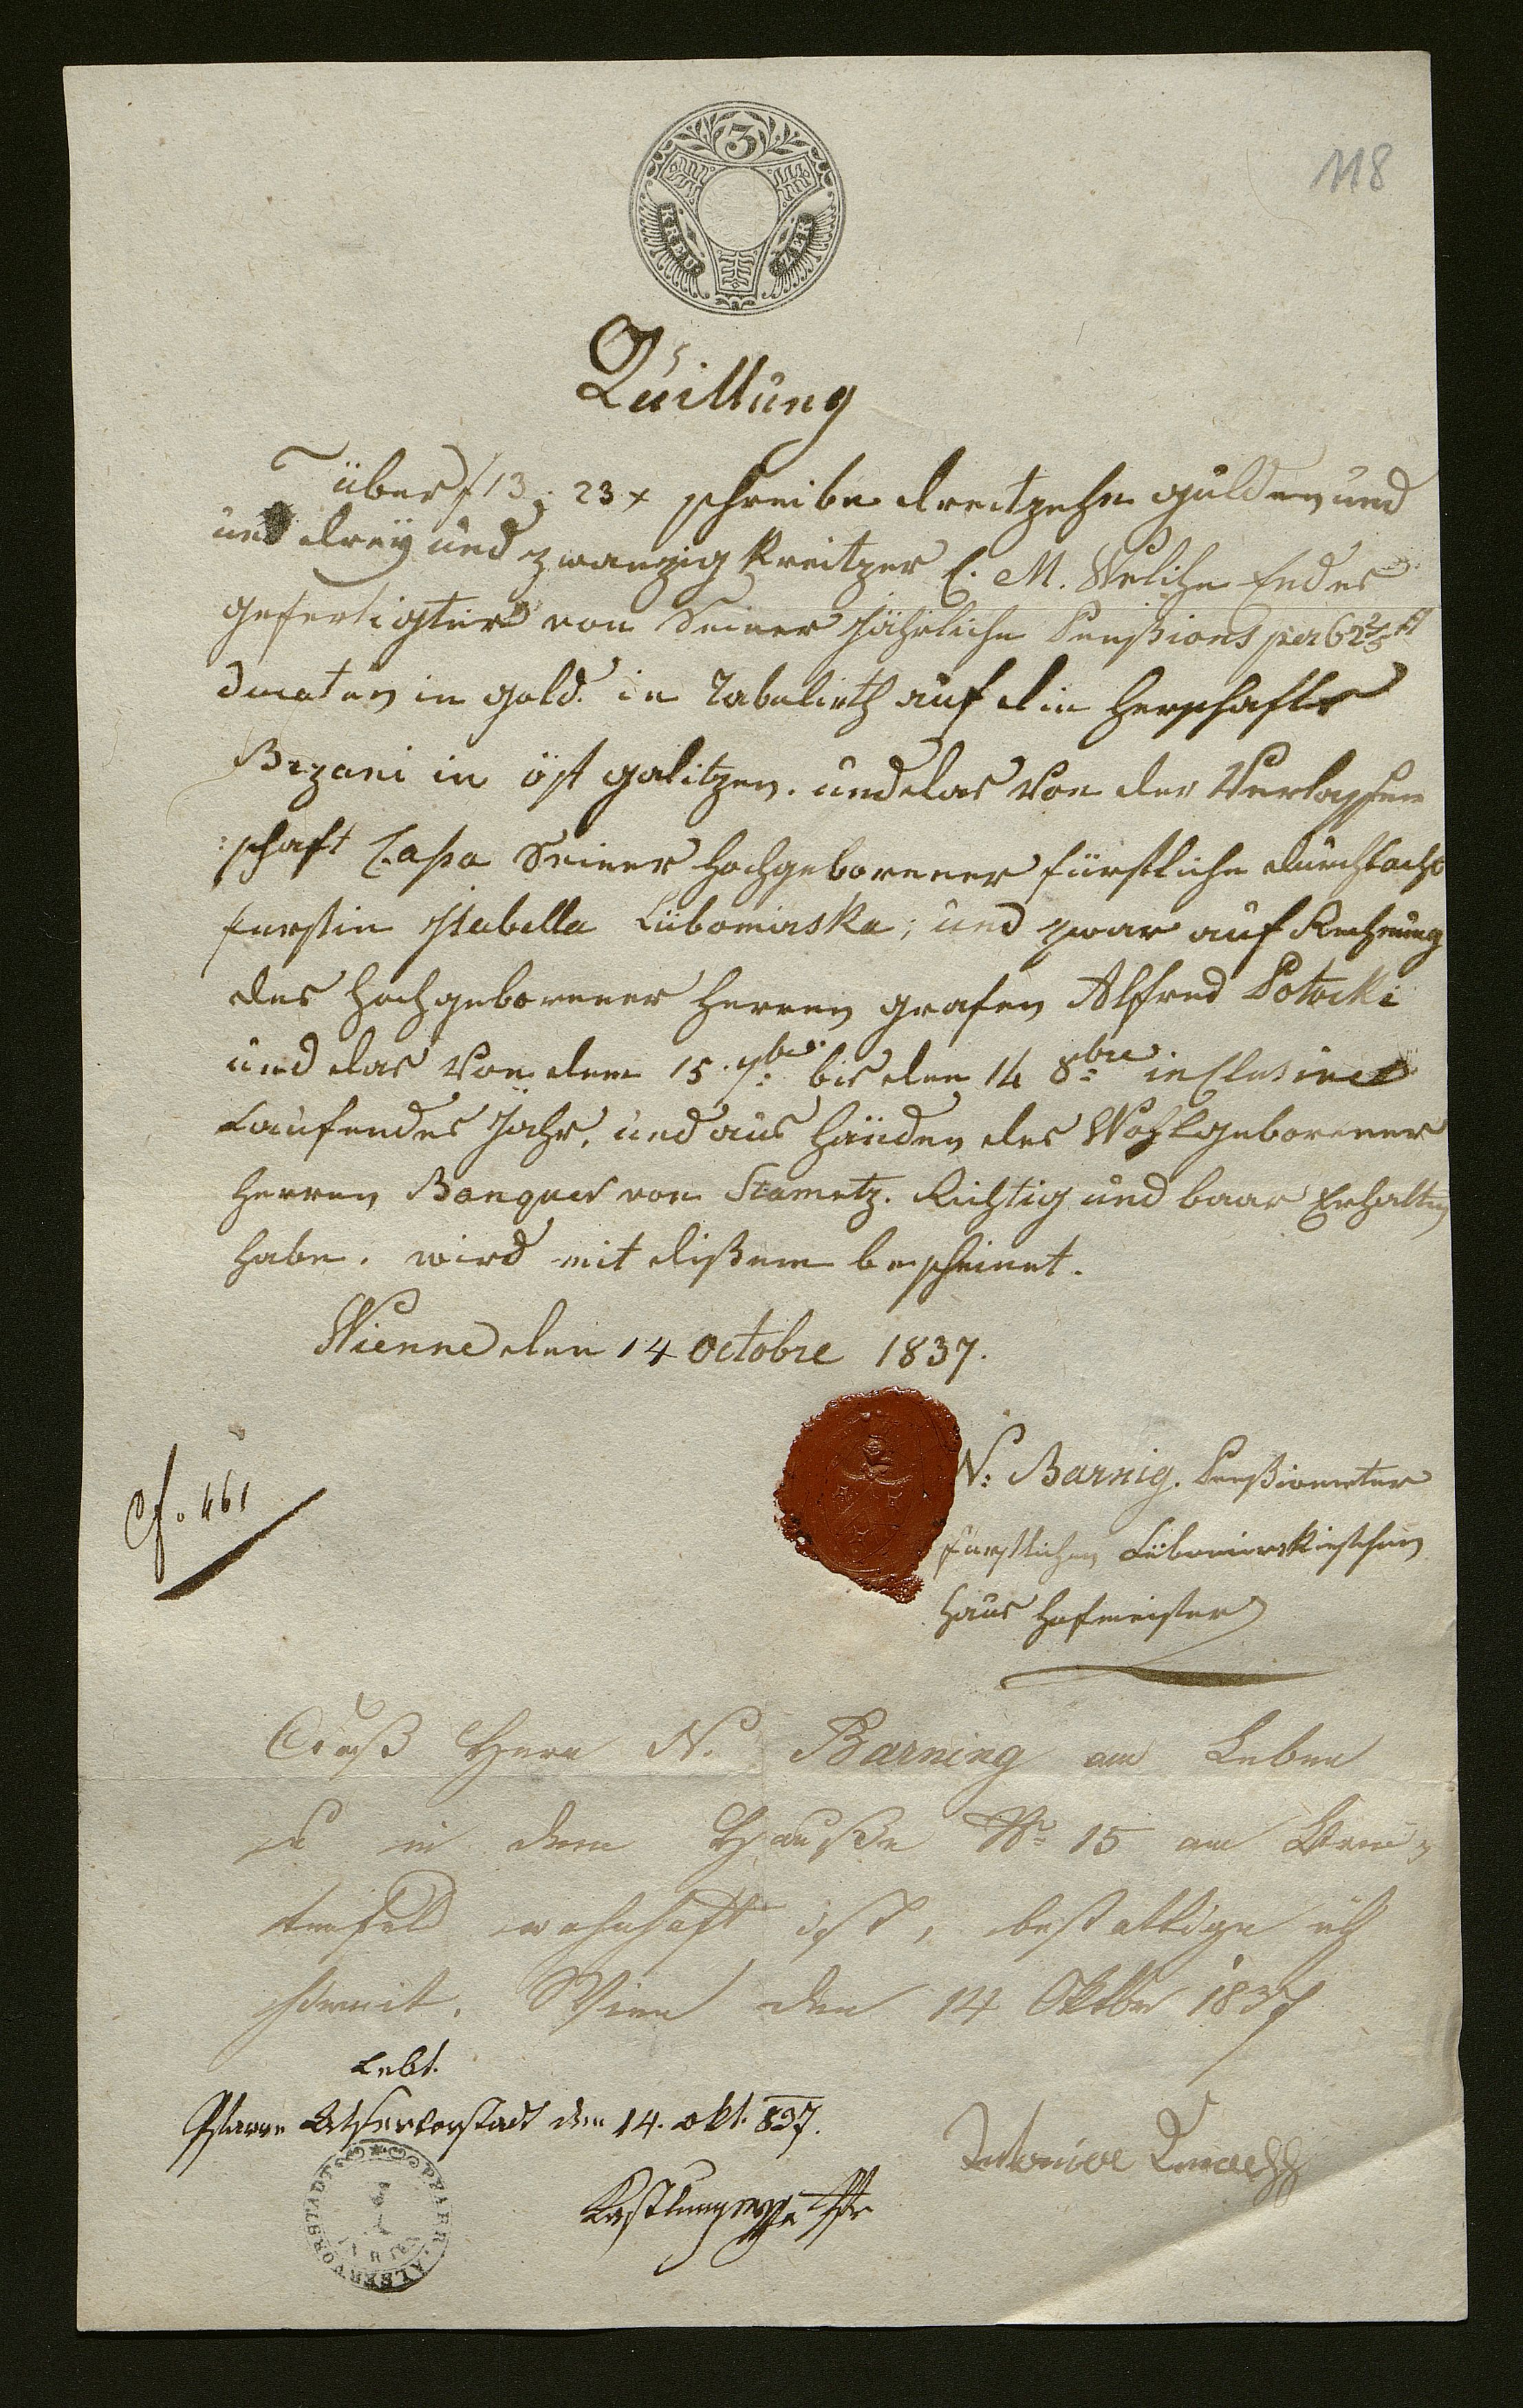 118
3
KREU ZER
Quittung
über f 13: 23 x schreibe dreitzehn gulden und
und dreÿ und zwanzig Kreitzer C. M. Welche Endes
gefertigter von Seiner Jährliche Penßions per 62 2/3
ducaten in gold. in Tabulirth auf die Herschafts
Brzani in öst galitzen. und das von der Verlassen
:schaft Massa Seiner hochgeborener fürstliche durchlacht
fürstin Isabella Lübomirska; und zwar auf Rechnung
des hochgeborener Herren grafen Alfred Potocki
und das von dem 15. 7bre bis den 14 8bre in Clusive
Laufendes Jahr, und aus Händen des Wohlgeborener
Herren Banquer von Stametz. Richtig und baar Erhalten
habe. wird mit dißem bescheinet.
Vienne den 14 octobre 1837.
N: Barnig. Penßionierter
fürstlichen Lübomirskischen
Haus Hofmeister
f. 461
Daß Herr N. Barning am Leben
u in dem Hauße No 15 am Brei-
tenfeld wohnhaft ist, bestättige ich
hiermit. Wien den 14 Oktbr 1837
Lebt.
Pfarre Alservorstadt den 14. Okt. 837.
PFARR ALSERVORSTADT